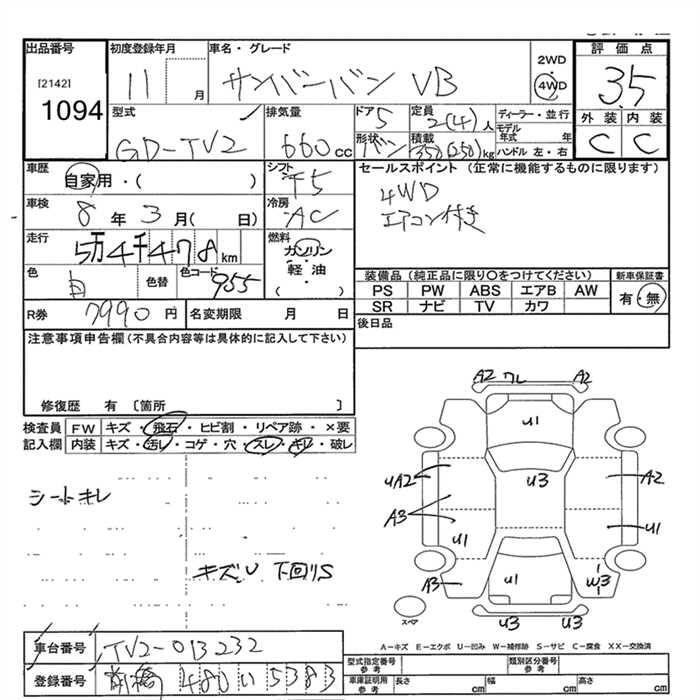 出品番号
[2142]
1094
初度登録年月
11 月
車名・グレード
サンバーバン VB
2WD
4WD
評価点
3.5
外装 内装
C C
型式
GD-TV2
排気量
660cc
ドア
5
定員
2(4)人
ディーラー・並行
モデル年式 年
ハンドル 左・右
形状
バン
積載
350(250)kg
車歴
自家用・( )
シフト
F5
セールスポイント (正常に機能するものに限ります)
4WD
エアコン付き
車検
8年 3月( 日)
冷房
AC
走行
5万4千478km
燃料
ガソリン
軽油
( )
色
白
色替
色コード
955
装備品(純正品に限り○をつけてください)
新車保証書
PS PW ABS エアB AW
有・無
SR ナビ TV カワ
R券 7990円
名変期限 月 日
後日品
注意事項申告欄(不具合内容等は具体的に記入して下さい)
修復歴 有〔箇所 〕
検査員 記入欄
FW キズ・飛石・ヒビ割・リペア跡・×要
内装 キズ・汚レ・コゲ・穴・スレ・キレ・破レ
シートキレ
キズU 下回りS
A2 ワレ A2
U1
U3
UA2
A2
A3
U1
U1
A3
U1
W3
U3 U3
スペア
A-キズ E-エクボ U-凹み W-補修跡 S-サビ C-腐食 XX-交換済
車台番号 TV2-013232
登録番号 前橋 480 い 5383
型式指定番号 参考
類別区分番号 参考
車庫証明用 参考
長さ cm
幅 cm
高さ cm